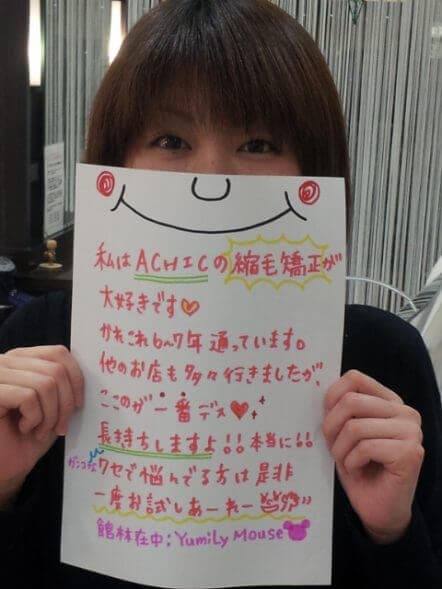 私はACHICの縮毛矯正が
大好きです♡
かれこれ6〜7年通っています。
他のお店も多々行きましたが、
ここのが一番デス♥
長持ちしますよ!!本当に!!
ガンコなクセで悩んでる方は是非
一度お試しあーれー
館林在中:YumiLy Mouse